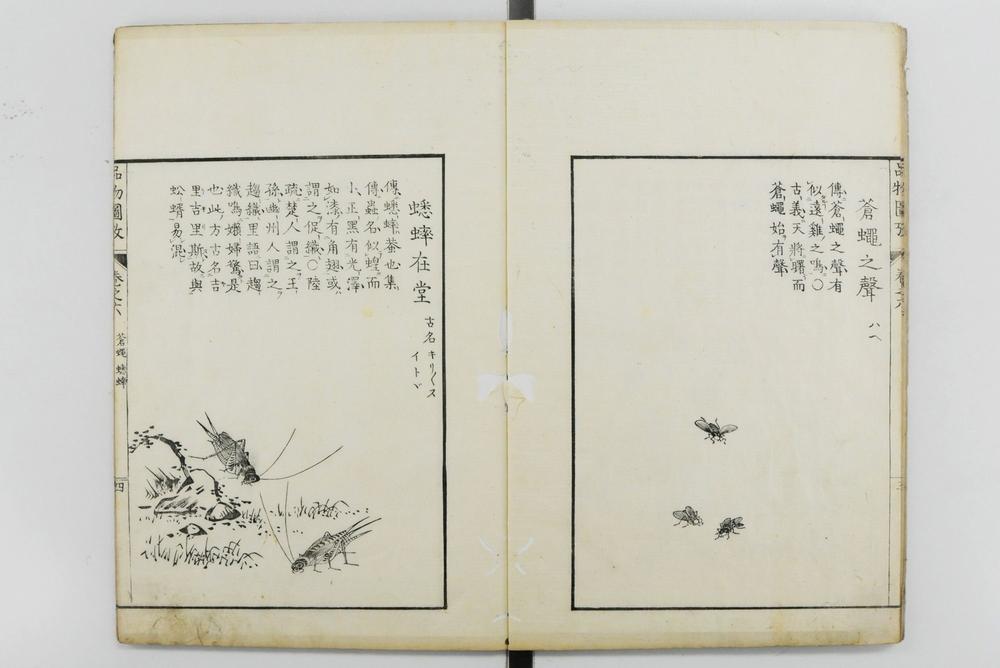 蒼蠅之聲
ハヘ
傳蒼蠅之聲有
似遠雞之鳴○
古義天將曙而
蒼蠅始有聲
蟋蟀在堂
古名キリ〳〵ス
イトヾ
傳蟋蟀蛬也集
傳蟲名似蝗而
小正黑有光澤
如漆有角翅或
謂之促織○陸
疏楚人謂之王
孫幽州人謂之
趨織里語曰趨
織鳴嬾婦驚是
也此方古名吉
里吉里斯故與
蚣蝑易混
品物圖攷
卷之六
蒼蠅 蟋蟀
四